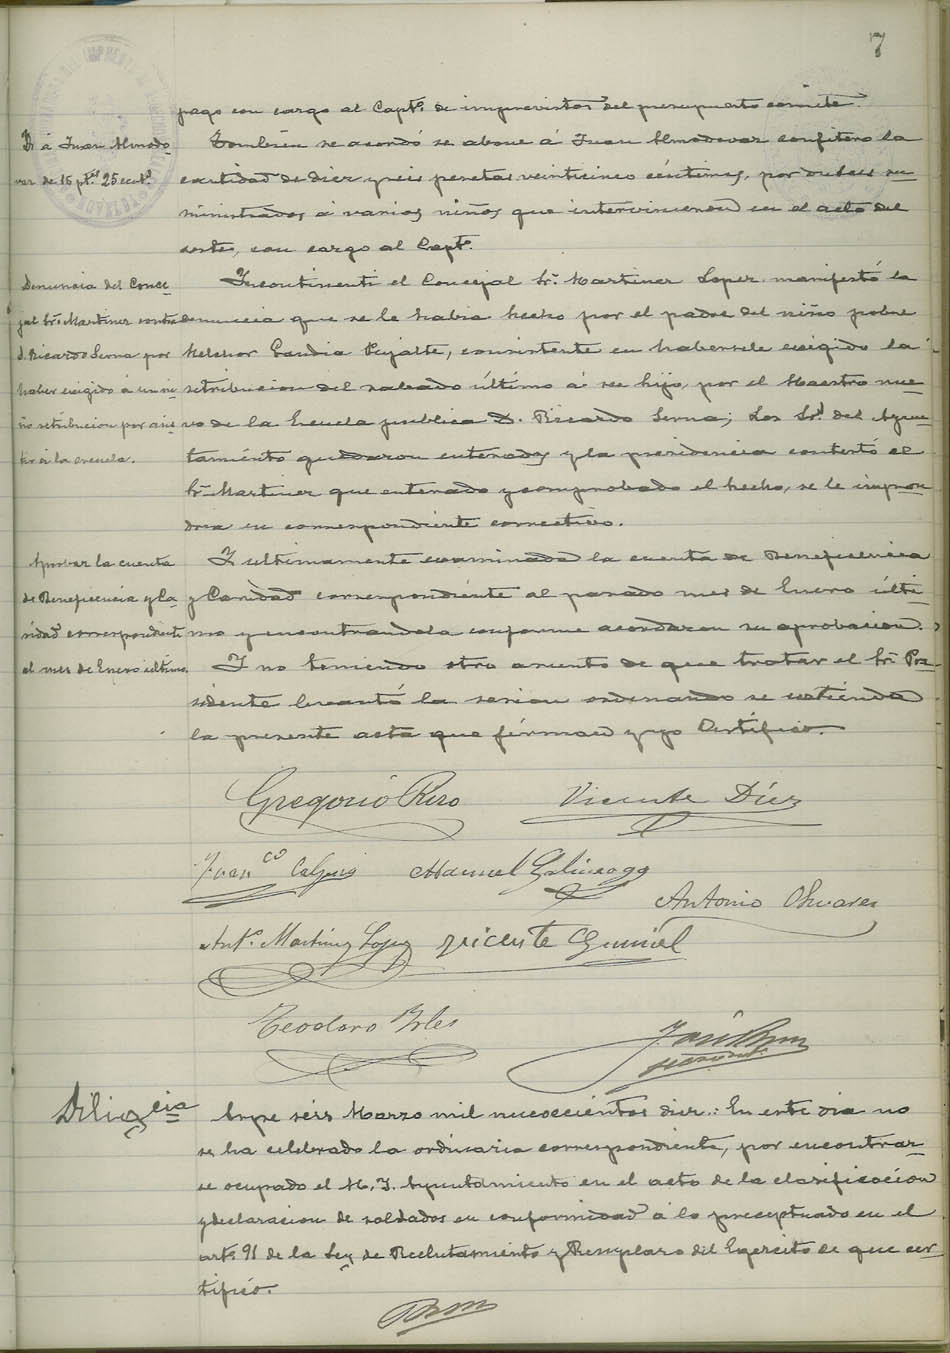 7
pago con cargo al Capto. de imprevistos del presupuesto
Id á Juan Almodo-
var de 16 pts. 25 cents.
Tambien se acordó se abone á Juan Almodovar confitero la
cantidad de diez y seis pesetas veinticinco céntimos, por dulces su-
ministrados á varios niños que intervinieron en el acto del
sorteo, con cargo al Capto.
Denuncia del Conce-
jal Sr. Martinez contra
D. Ricardo Serna por
haber exigido á un ni-
ño retribucion por asis-
tir á la escuela.
Incontinenti el Concejal Sr. Martinez Lopez manifestó la
denuncia que se le habia hecho por el padre del niño pobre
Melchor Candia Pujalte, consistente en habersele exigido la
retribucion del sabado último á su hijo, por el Maestro nue-
vo de la Escuela publica D. Ricardo Serna; Los Srs. del Ayun-
tamiento quedaron enterados y la presidencia contestó al
Sr. Martinez que enterado y comprobado el hecho, se le impon-
dria su correspondiente correctivo.
Aprobar la cuenta
de Beneficencia y Ca-
ridad correspondiente
al mes de Enero último.
Y ultimamente examinada la cuenta de Beneficencia
y Caridad correspondiente al pasado mes de Enero últi-
mo y encontrandola conforme acordaron su aprobacion.
Y no teniendo otro asunto de que tratar el Sr. Pre-
sidente levantó la sesion ordenando se extienda
la presente acta que firman y yo Certifico.
Gregorio Rizo Vicente Díez
Franco Manuel Galinsoga
Antonio Olivares
Anto. Martinez Lopez Vicente
Teodoro
Diligcia
Aspe séis Marzo mil nuecocientos diez.: En este dia no
se ha celebrado la ordinaria correspondiente, por encontrar-
se ocupado el M. I. Ayuntamiento en el acto de la clasificación
y declaracion de soldados en conformidad á lo preceptuado en el
arto. 91 de la Ley de Reclutamiento y Remplazo del Egercito de que cer-
tifico.